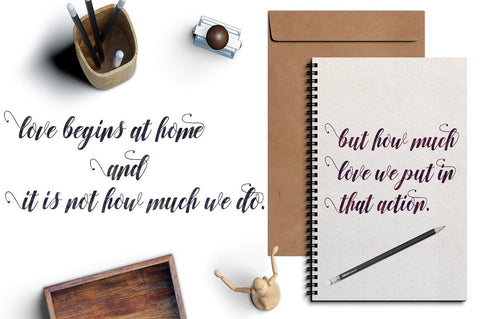 love begins at home
and
it is not how much we do.
but how much
love we put in
that action.